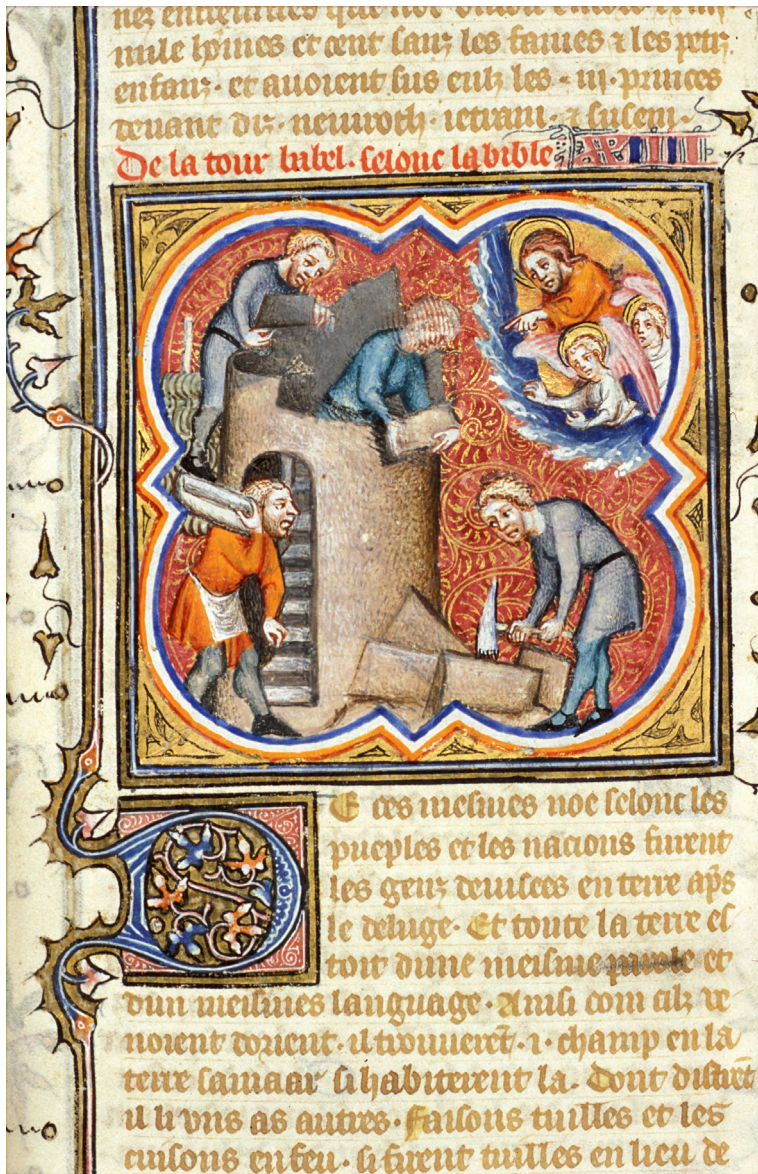 mile homes et cent sanz les fames & les petiz
enfans. et avoient sus eulz les .iij. princes
devant diz. nemroth. ietram. & suseni.
De la tour babel. selonc la bible
De ces meismes noe selonc les
pueples et les nacions furent
les genz devisees en terre aps
le deluge. Et toute la terre es
toit dune meisme parole et
dun meismes language. Ainsi com cilz ve
noient dorient. il trouveret .i. champ en la
terre sanaar si habiterent la. Dont distret
il li uns as autres. Faisons tuilles et les
cuisons en feu. si furent tuilles en lieu de